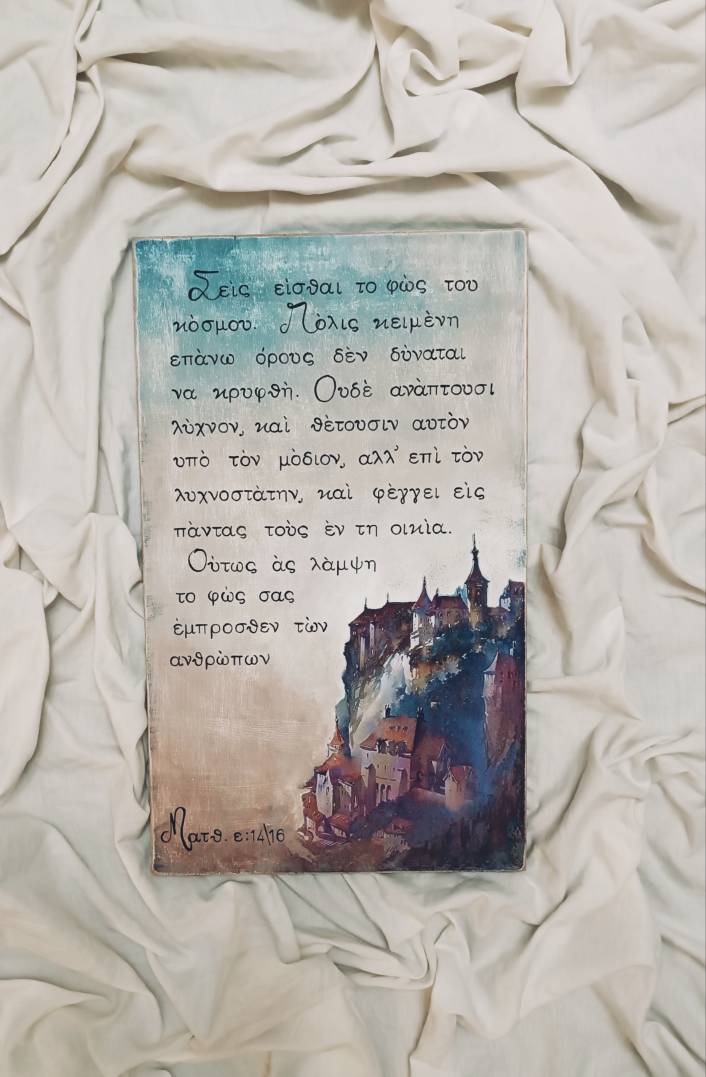 Σεὶς εὶσθαι το φὼς του
κὸσμου. Πὸλις κειμὲνη
επὰνω όρους δὲν δὺναται
να κρυφθὴ. Ουδὲ ανὰπτουσι
λὺχνον, καὶ θὲτουσιν αυτὸν
υπὸ τὸν μὸδιον, αλλ' επὶ τὸν
λυχνοστὰτην, καὶ φὲγγει εὶς
πὰντας τοὺς ὲν τη οικὶα.
Οὺτως ὰς λὰμψη
το φὼς σας
ὲμπροσθεν τὼν
ανθρὼπων
Ματθ. ε:14\16